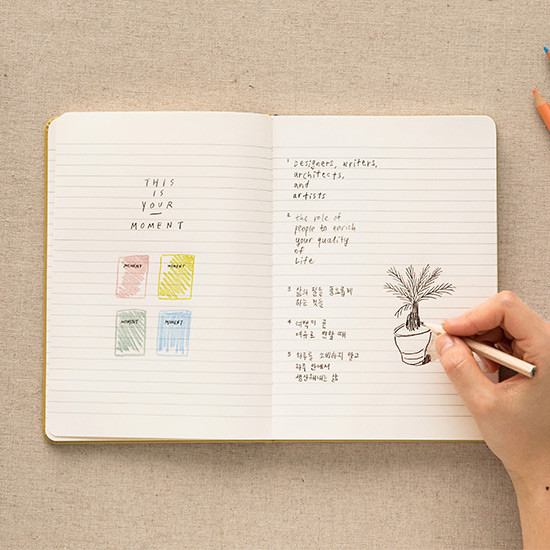 THIS
IS
YOUR
MOMENT
MOMENT
MOMENT
MOMENT
MOMENT
1 Designers, writers,
architects,
and
artists
2 the role of
people to enrich
your quality
of
Life
3 삶의 질을 풍요롭게
하는 것들
4 여백이 곧
여유로 변할 때
5 하루를 소비하지 않고
하루 안에서
생산해내는 삶